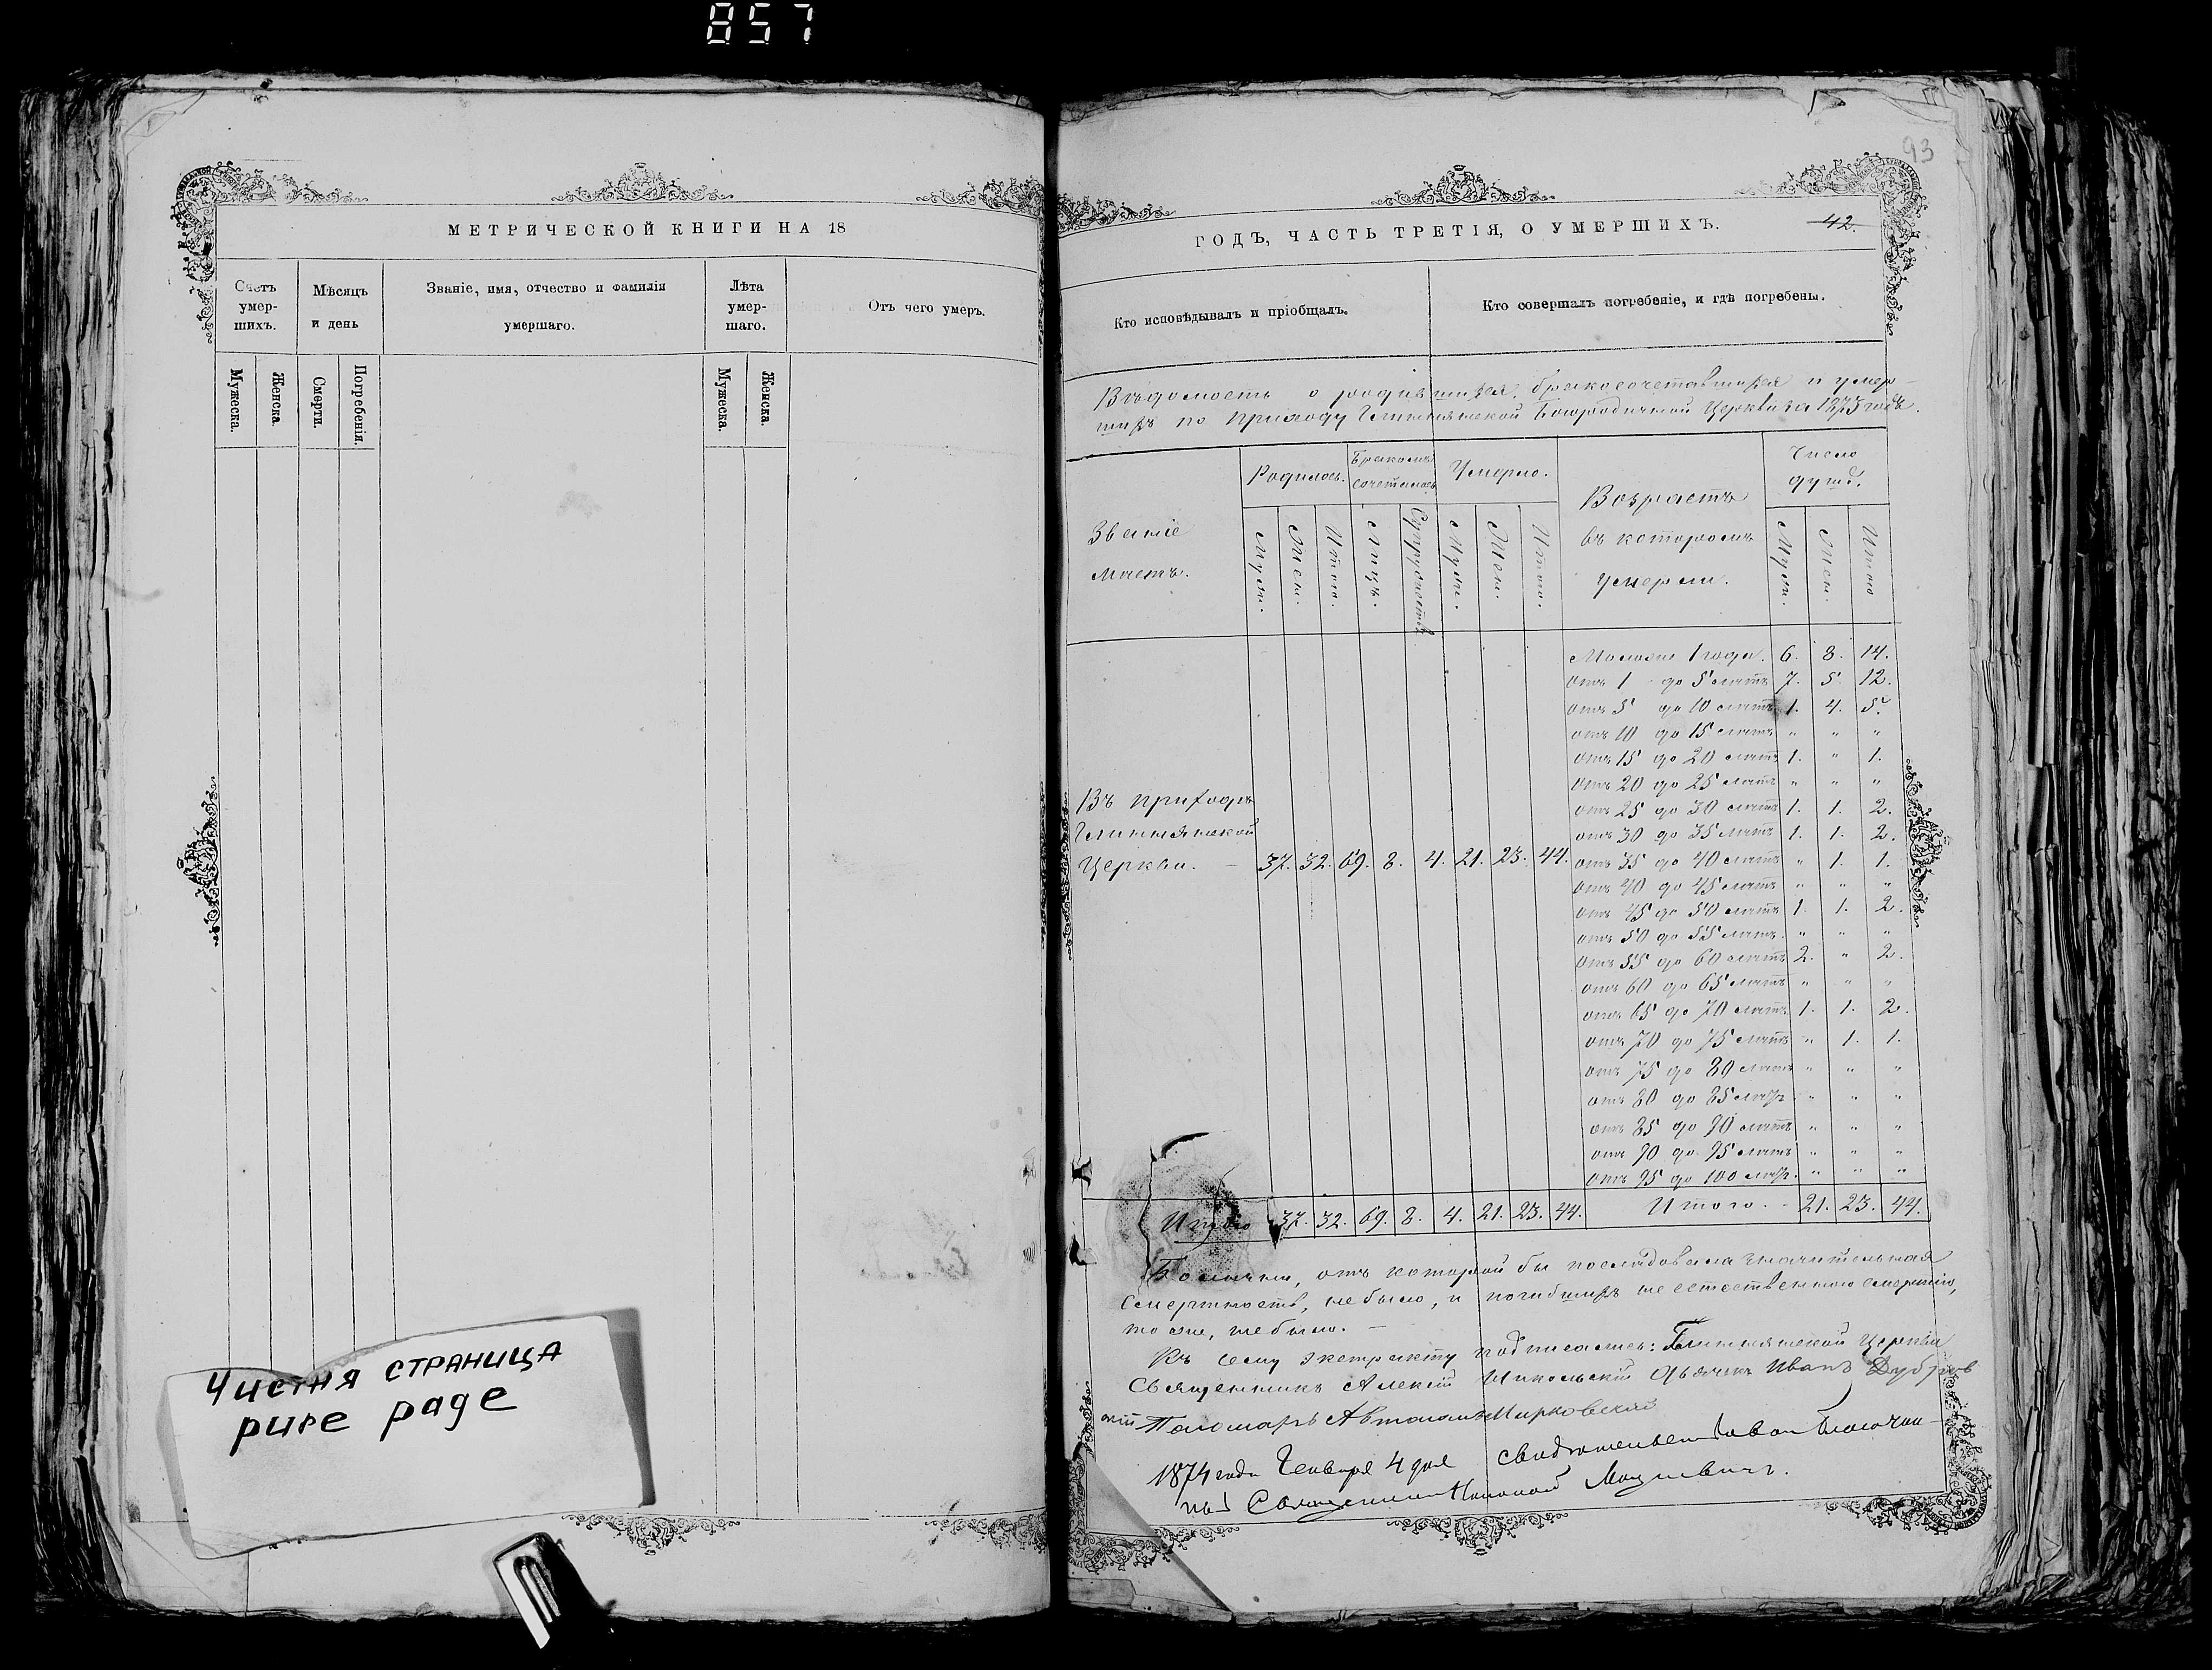 857
МЕТРИЧЕСКОЙ КНИГИ НА 18
Счетъ умер-шихъ.
Мѣсяцъ и день
Званіе, имя, отчество и фамилія умершаго.
Лѣта умер-шаго.
Отъ чего умеръ.
Мужеска.
Женска.
Смерти.
Погребенія.
Мужеска.
Женска.
Чистня страница
pure page
93
ГОДЪ, ЧАСТЬ ТРЕТІЯ, О УМЕРШИХЪ.
42.
Кто исповѣдывалъ и пріобщалъ.
Кто совершалъ погребеніе, и гдѣ погребены.
Вѣдомость о родившихся, бракосочетавшихся и умер-
шихъ по приходу Богородичной Церкви за 1873 годъ.
Званіе мѣстъ.
Родилось.
Бракомъ сочеталось
Умерло.
Возрастъ въ которомъ умерли.
Число душъ.
Муж.
Жен.
Итого.
Лицъ.
Супружествъ
Муж.
Жен.
Итого.
Муж.
Жен.
Итого
Моложе 1 года. 6. 8. 14.
отъ 1 до 5 лѣтъ 7. 5. 12.
отъ 5 до 10 лѣтъ 1. 4. 5.
отъ 10 до 15 лѣтъ " " "
отъ 15 до 20 лѣтъ 1. " 1.
отъ 20 до 25 лѣтъ " " "
отъ 25 до 30 лѣтъ 1. 1. 2.
отъ 30 до 35 лѣтъ 1. 1. 2.
Въ приходѣ
Церкви. — 37. 32. 69. 8. 4. 21. 23. 44.
отъ 35 до 40 лѣтъ " 1. 1.
отъ 40 до 45 лѣтъ " " "
отъ 45 до 50 лѣтъ 1. 1. 2.
отъ 50 до 55 лѣтъ. " " "
отъ 55 до 60 лѣтъ 2. " 2.
отъ 60 до 65 лѣтъ " " "
отъ 65 до 70 лѣтъ 1. 1. 2.
отъ 70 до 75 лѣтъ " 1. 1.
отъ 75 до 80 лѣтъ " " "
отъ 80 до 85 лѣтъ " " "
отъ 85 до 90 лѣтъ " " "
отъ 90 до 95 лѣтъ " " "
отъ 95 до 100 лѣтъ. " " "
Итого 37. 32. 69. 8. 4. 21. 23. 44. Итого. - 21. 23. 44.
отъ которой бы послѣдовала значительная
смертность, не было, и погибшихъ не естественною смертію,
то же, не было. —
Къ сему экстракту подписались: Церкви
Священникъ Алексій Никольскій Дьячекъ Иванъ
Пономарь
1874 года Генваря 4 дня свидѣтельствовалъ Благочин-
ный Священник